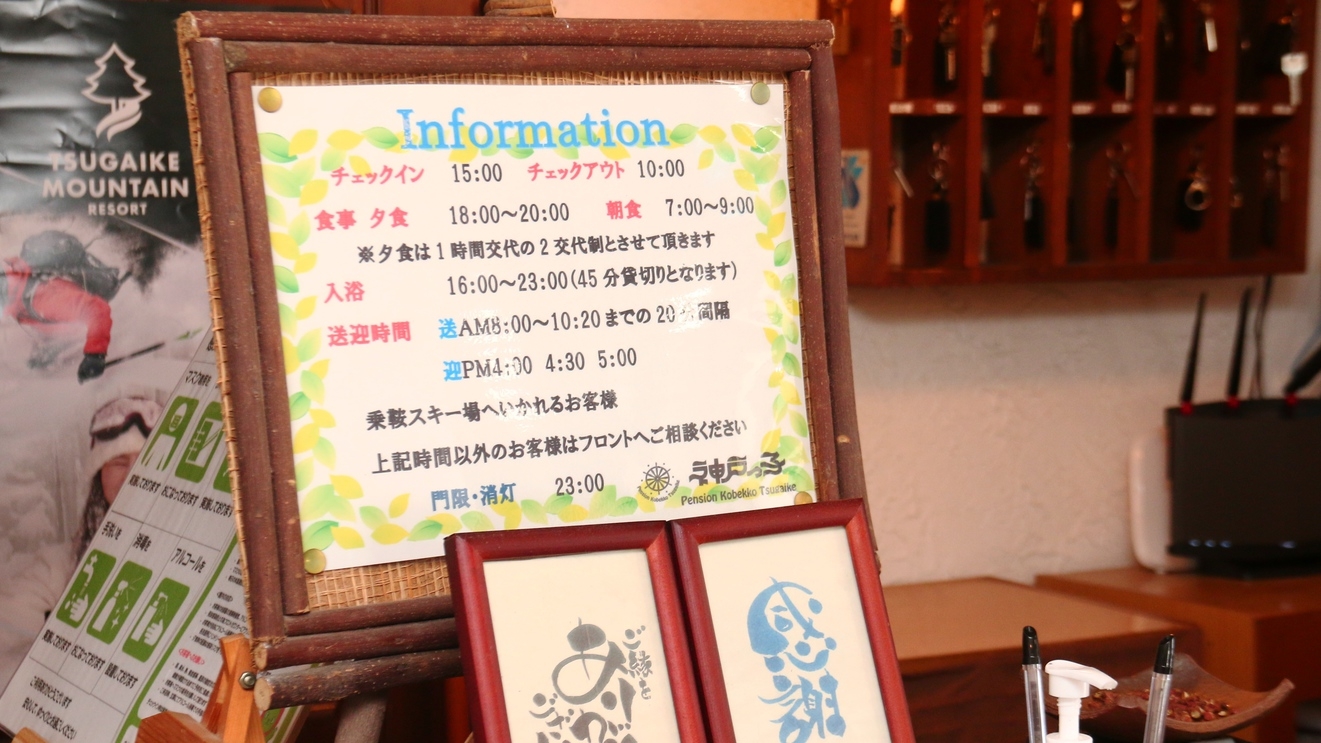 TSUGAIKE
MOUNTAIN
RESORT
Information
チェックイン 15:00 チェックアウト 10:00
食事 夕食 18:00～20:00 朝食 7:00～9:00
※夕食は1時間交代の2交代制とさせて頂きます
入浴 16:00～23:00(45分貸切りとなります)
送迎時間 送AM8:00～10:20までの20分間隔
迎PM4:00 4:30 5:00
乗鞍スキー場へいかれるお客様
上記時間以外のお客様はフロントへご相談ください
門限・消灯 23:00
神戸っ子
Pension Kobekko Tsugaike
手洗いを 消毒を アルコールを
実施しております おこなっております 設置しております
ご縁を
ありがとう
感謝